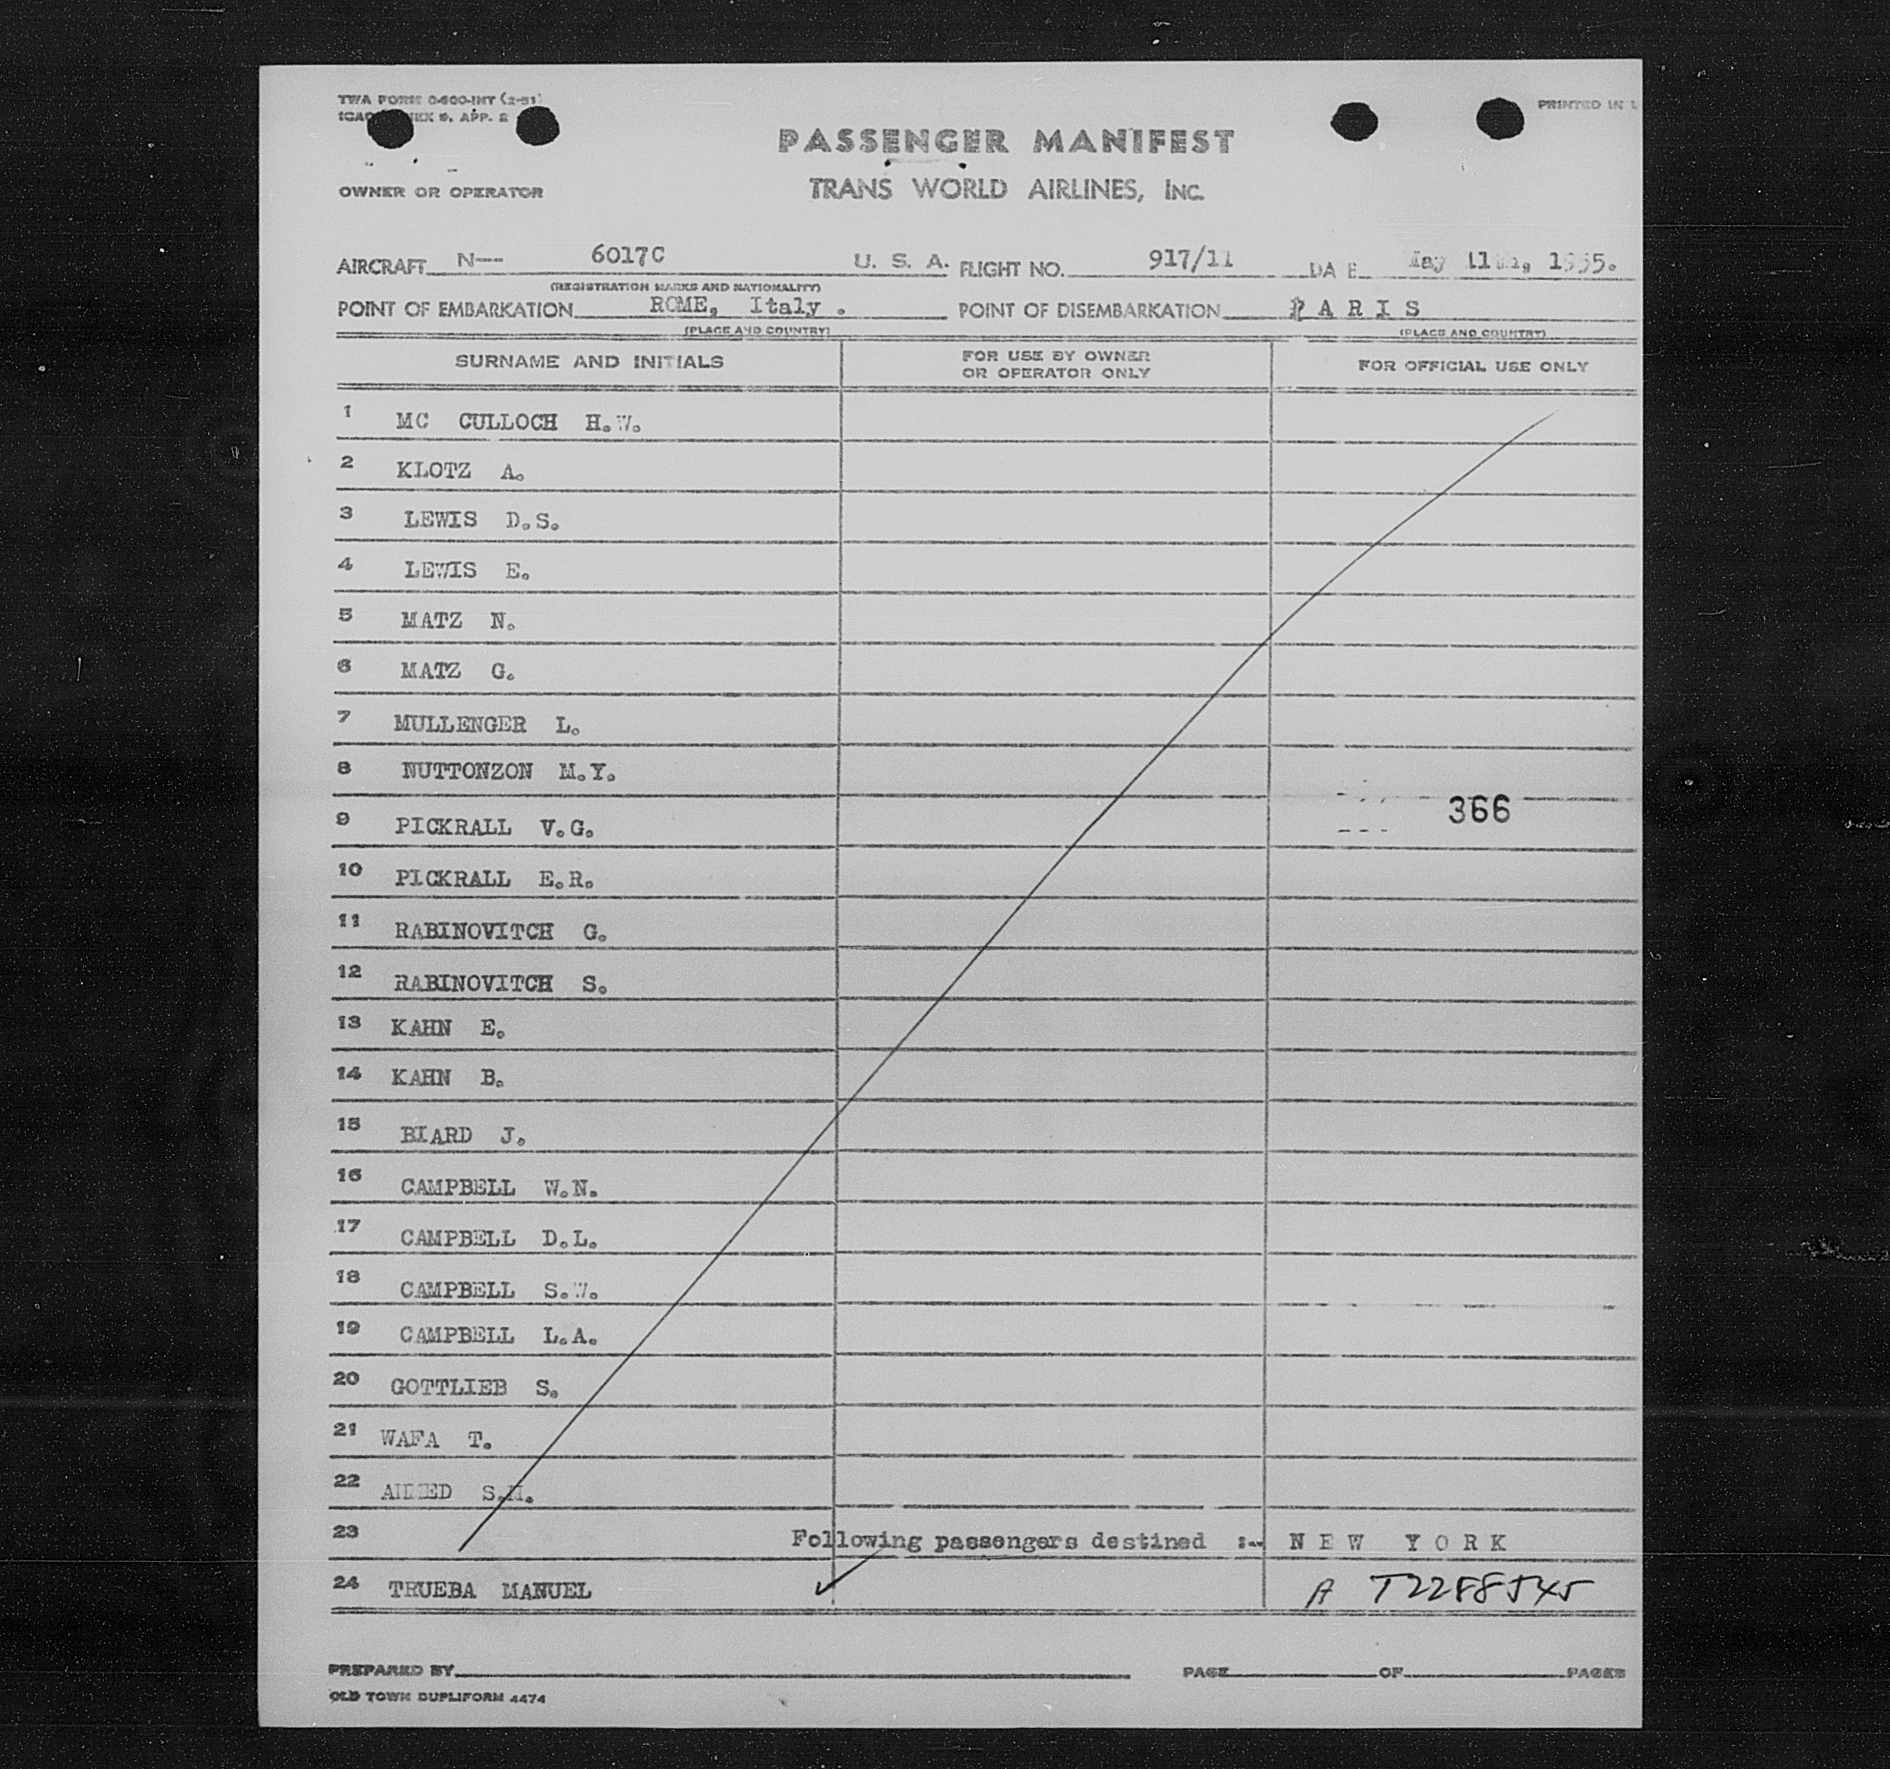 TWA FORM 0-600-INT (2-51)
9, APP. 2
PRINTED IN
PASSENGER MANIFEST
OWNER OR OPERATOR
TRANS WORLD AIRLINES, INC.
AIRCRAFT N-- 6017C U. S. A. FLIGHT NO. 917/11 DA E May 11th, 1955.
(REGISTRATION MARKS AND NATIONALITY)
POINT OF EMBARKATION ROME, Italy . POINT OF DISEMBARKATION P A R I S
(PLACE AND COUNTRY) (PLACE AND COUNTRY)
SURNAME AND INITIALS FOR USE BY OWNER OR OPERATOR ONLY FOR OFFICIAL USE ONLY
1 MC CULLOCH H.W.
2 KLOTZ A.
3 LEWIS D.S.
4 LEWIS E.
5 MATZ N.
6 MATZ G.
7 MULLENGER L.
8 NUTTONZON M.Y.
366
9 PICKRALL V.G.
10 PICKRALL E.R.
11 RABINOVITCH G.
12 RABINOVITCH S.
13 KAHN E.
14 KAHN B.
15 BIARD J.
16 CAMPBELL W.N.
17 CAMPBELL D.L.
18 CAMPBELL S.W.
19 CAMPBELL L.A.
20 GOTTLIEB S.
21 WAFA T.
22 AHMED
23 Following passengers destined :-- N E W Y O R K
24 TRUEBA MANUEL A T2288545
PREPARED BY PAGE OF PAGES
OLD TOWN DUPLIFORM 4474